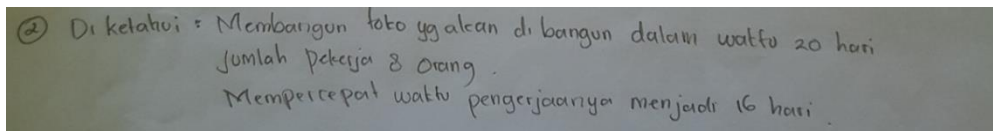 ② Di ketahui : Membangun toko yg akan di bangun dalam waktu 20 hari
Jumlah Pekerja 8 Orang.
Mempercepat waktu pengerjaanya menjadi 16 hari.